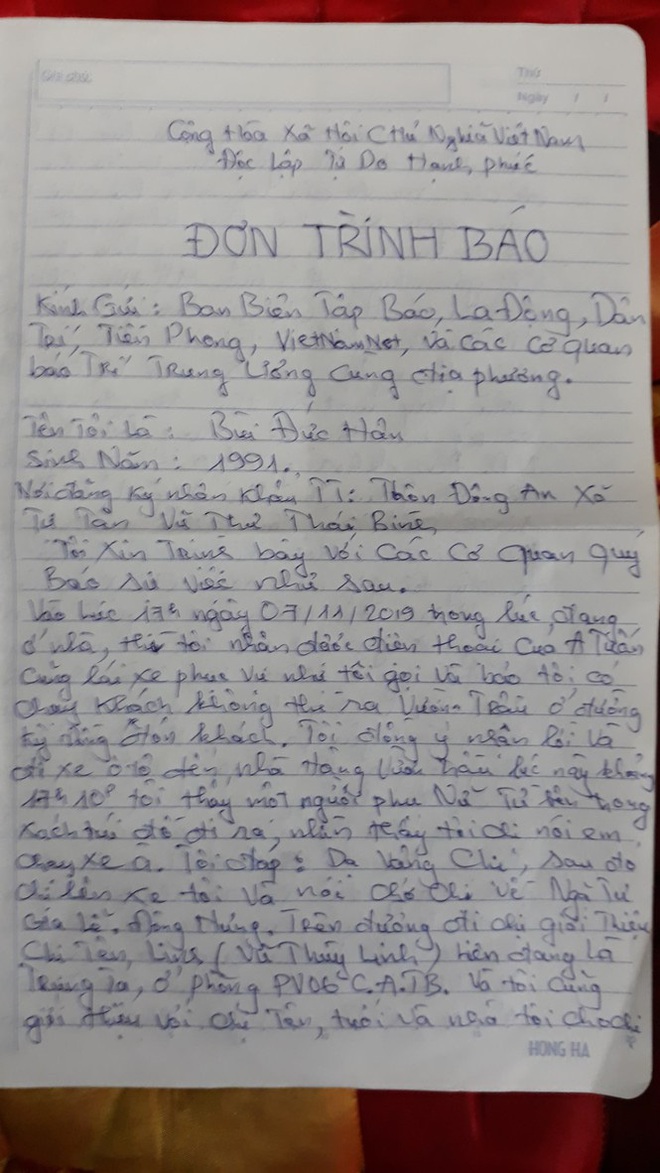 Thứ
Ngày / /
Cộng Hòa Xã Hội Chủ Nghĩa Việt Nam
Độc Lập Tự Do Hạnh phúc
ĐƠN TRÌNH BÁO
Kính Gửi: Ban Biên Tập Báo, La Động, Dân
Trí, Tiền Phong, VietNamNet, và các cơ quan
báo Trí Trung Ương Cung địa phương.
Tên Tôi Là: Bùi Đức Hân
Sinh Năm: 1991.
Nơi đăng ký nhân khẩu TT: Thôn Đông An Xã
Tự Tân Vũ Thư Thái Bình
Tôi Xin Trình bày với các cơ quan quý
Báo sự việc như sau.
Vào lúc 17h ngày 07/11/2019 trong lúc đang
ở nhà, thì tôi nhận được điện thoại của A Tuấn
cũng lái xe phục vụ như tôi gọi và bảo tôi có
chạy khách không thì ra Vườn Trầu ở đường
Kỳ Đồng đón khách. Tôi đồng ý nhận lời và
đi xe ô tô đến nhà Hàng Vườn trầu lúc này khoảng
17h10p tôi thấy một người phụ Nữ Từ bên trong
xách túi đồ đi ra, nhìn thấy tôi chị nói em
chạy xe à. Tôi đáp: Dạ Vâng Chị, sau đó
chị lên xe tôi và nói chở chị về Ngã Tư
Gia Lễ, Đông Hưng. Trên đường đi chị giới Thiệu
Chị Tên Linh (Vũ Thùy Linh) hiện đang là
Trung Tá, ở phòng PV06 C.A.TB. Và tôi cũng
giới thiệu với chị Tên, tuổi và nhà tôi cho chị
HONG HA